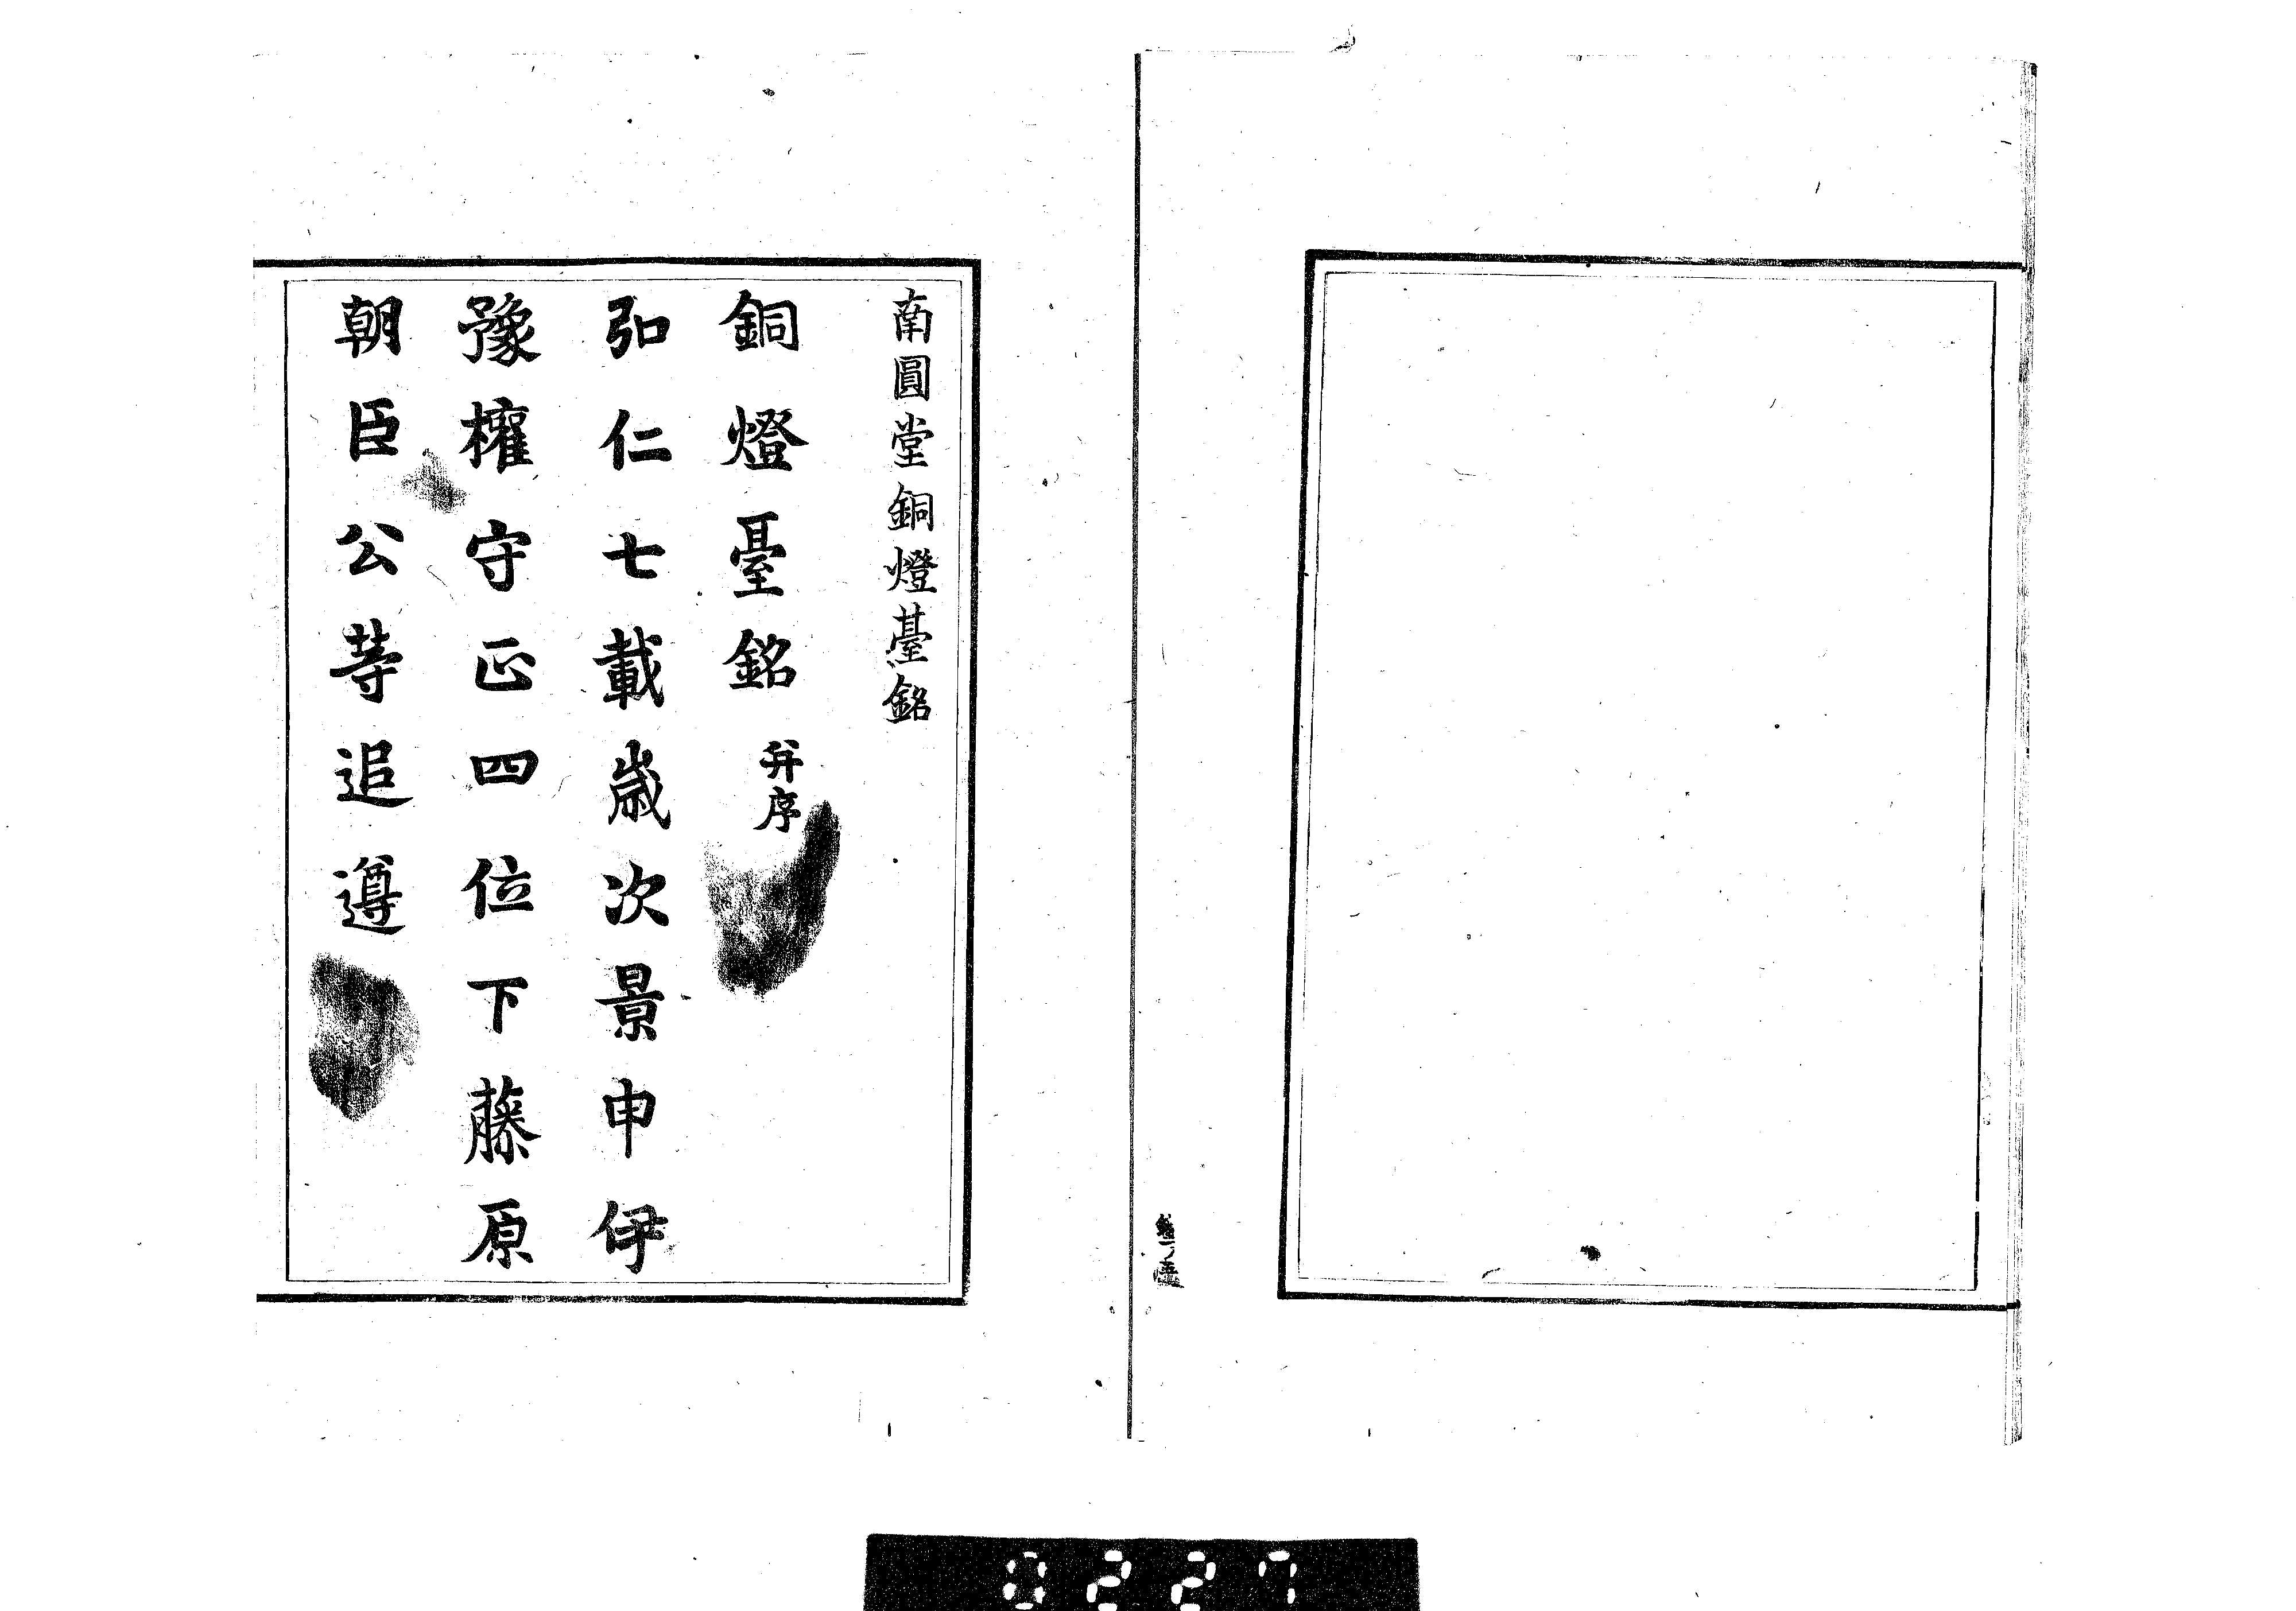 南圓堂銅燈臺銘
銅燈臺銘 并序
弘仁七載歳次景申伊
豫權守正四位下藤原
朝臣公等追遵
0227